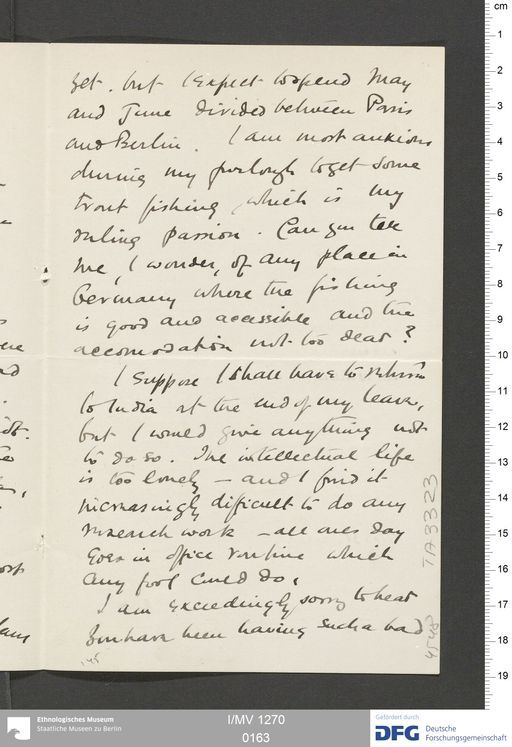 yet. but I expect to spend May
and June divided between Paris
and Berlin. I am most anxious
during my furlough to get some
trout fishing, which is my
ruling passion. Can you tell
me, I wonder, of any place in
Germany where the fishing
is good and accessible and the
accomodation not too dear?
I suppose I shall have to return
to India at the end of my leave,
but I would give anything not
to do so. The intellectual life
is too lonely – and I find it
increasingly difficult to do any
research work – all ones day
goes in office routine which
any fool could do.
I am exceedingly sorry to hear
you have been having such a bad
TA3323
4548
145
cm
1
2
3
4
5
6
7
8
9
10
11
12
13
14
15
16
17
18
19
Ethnologisches Museum
Staatliche Museen zu Berlin
I/MV 1270
0163
Gefördert durch
DFG Deutsche
Forschungsgemeinschaft